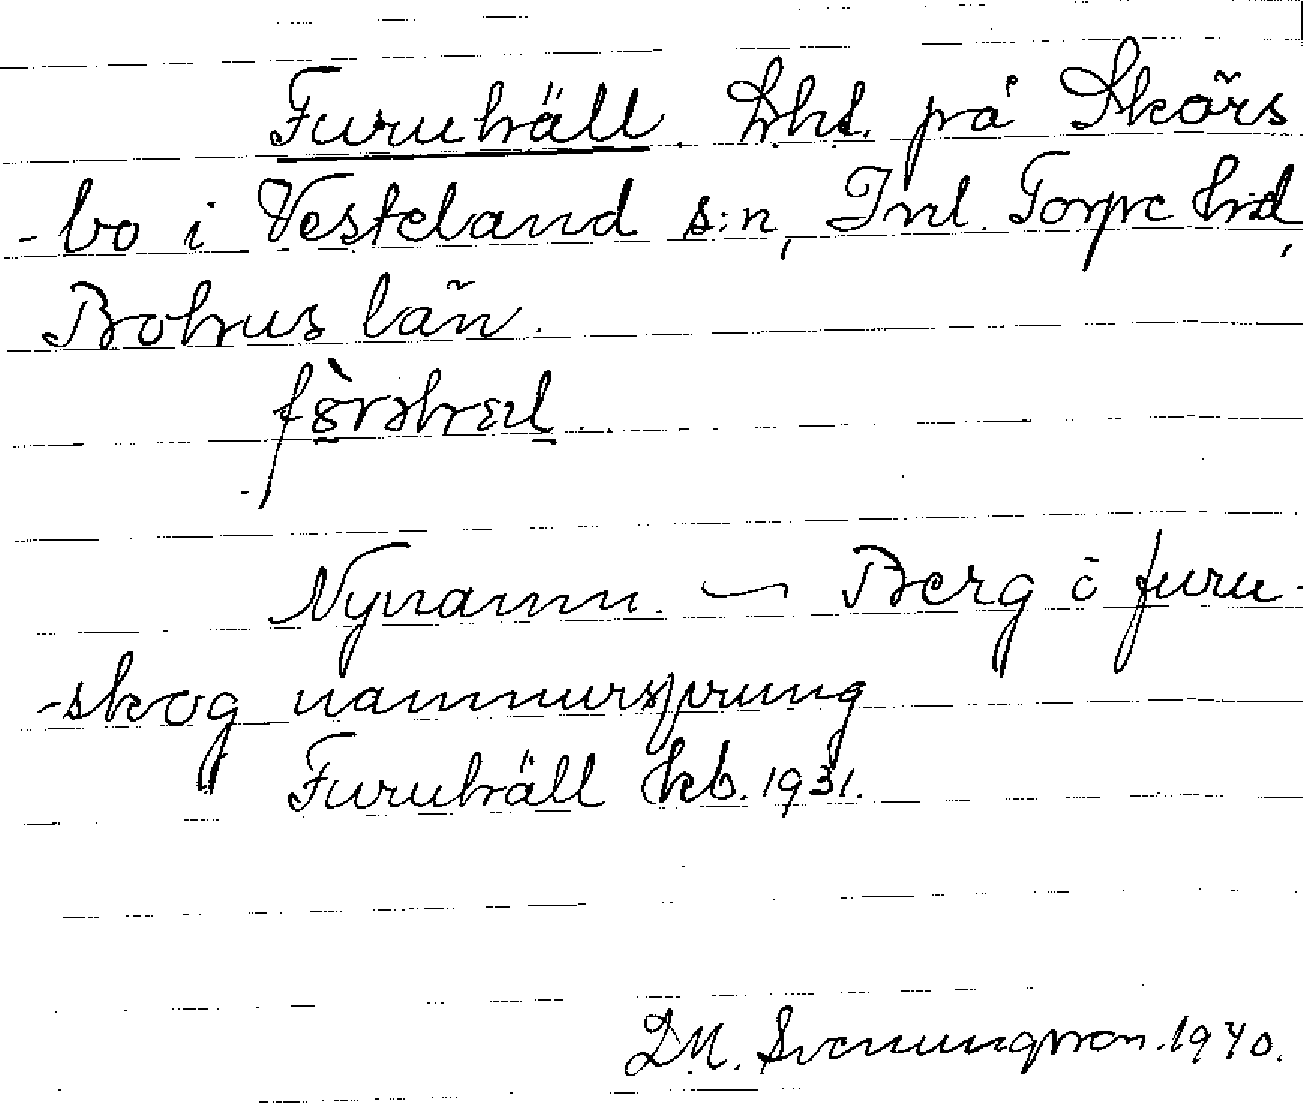 Furuhäll. Lht. på Skärs
-bo i Vesteland s:n, Inl. Torpe hd,
Bohus län.
Nynamn. — Berg o furu-
-skog namnursprung
Furuhäll kb. 1931.
D.M. Svenungsson. 1940.